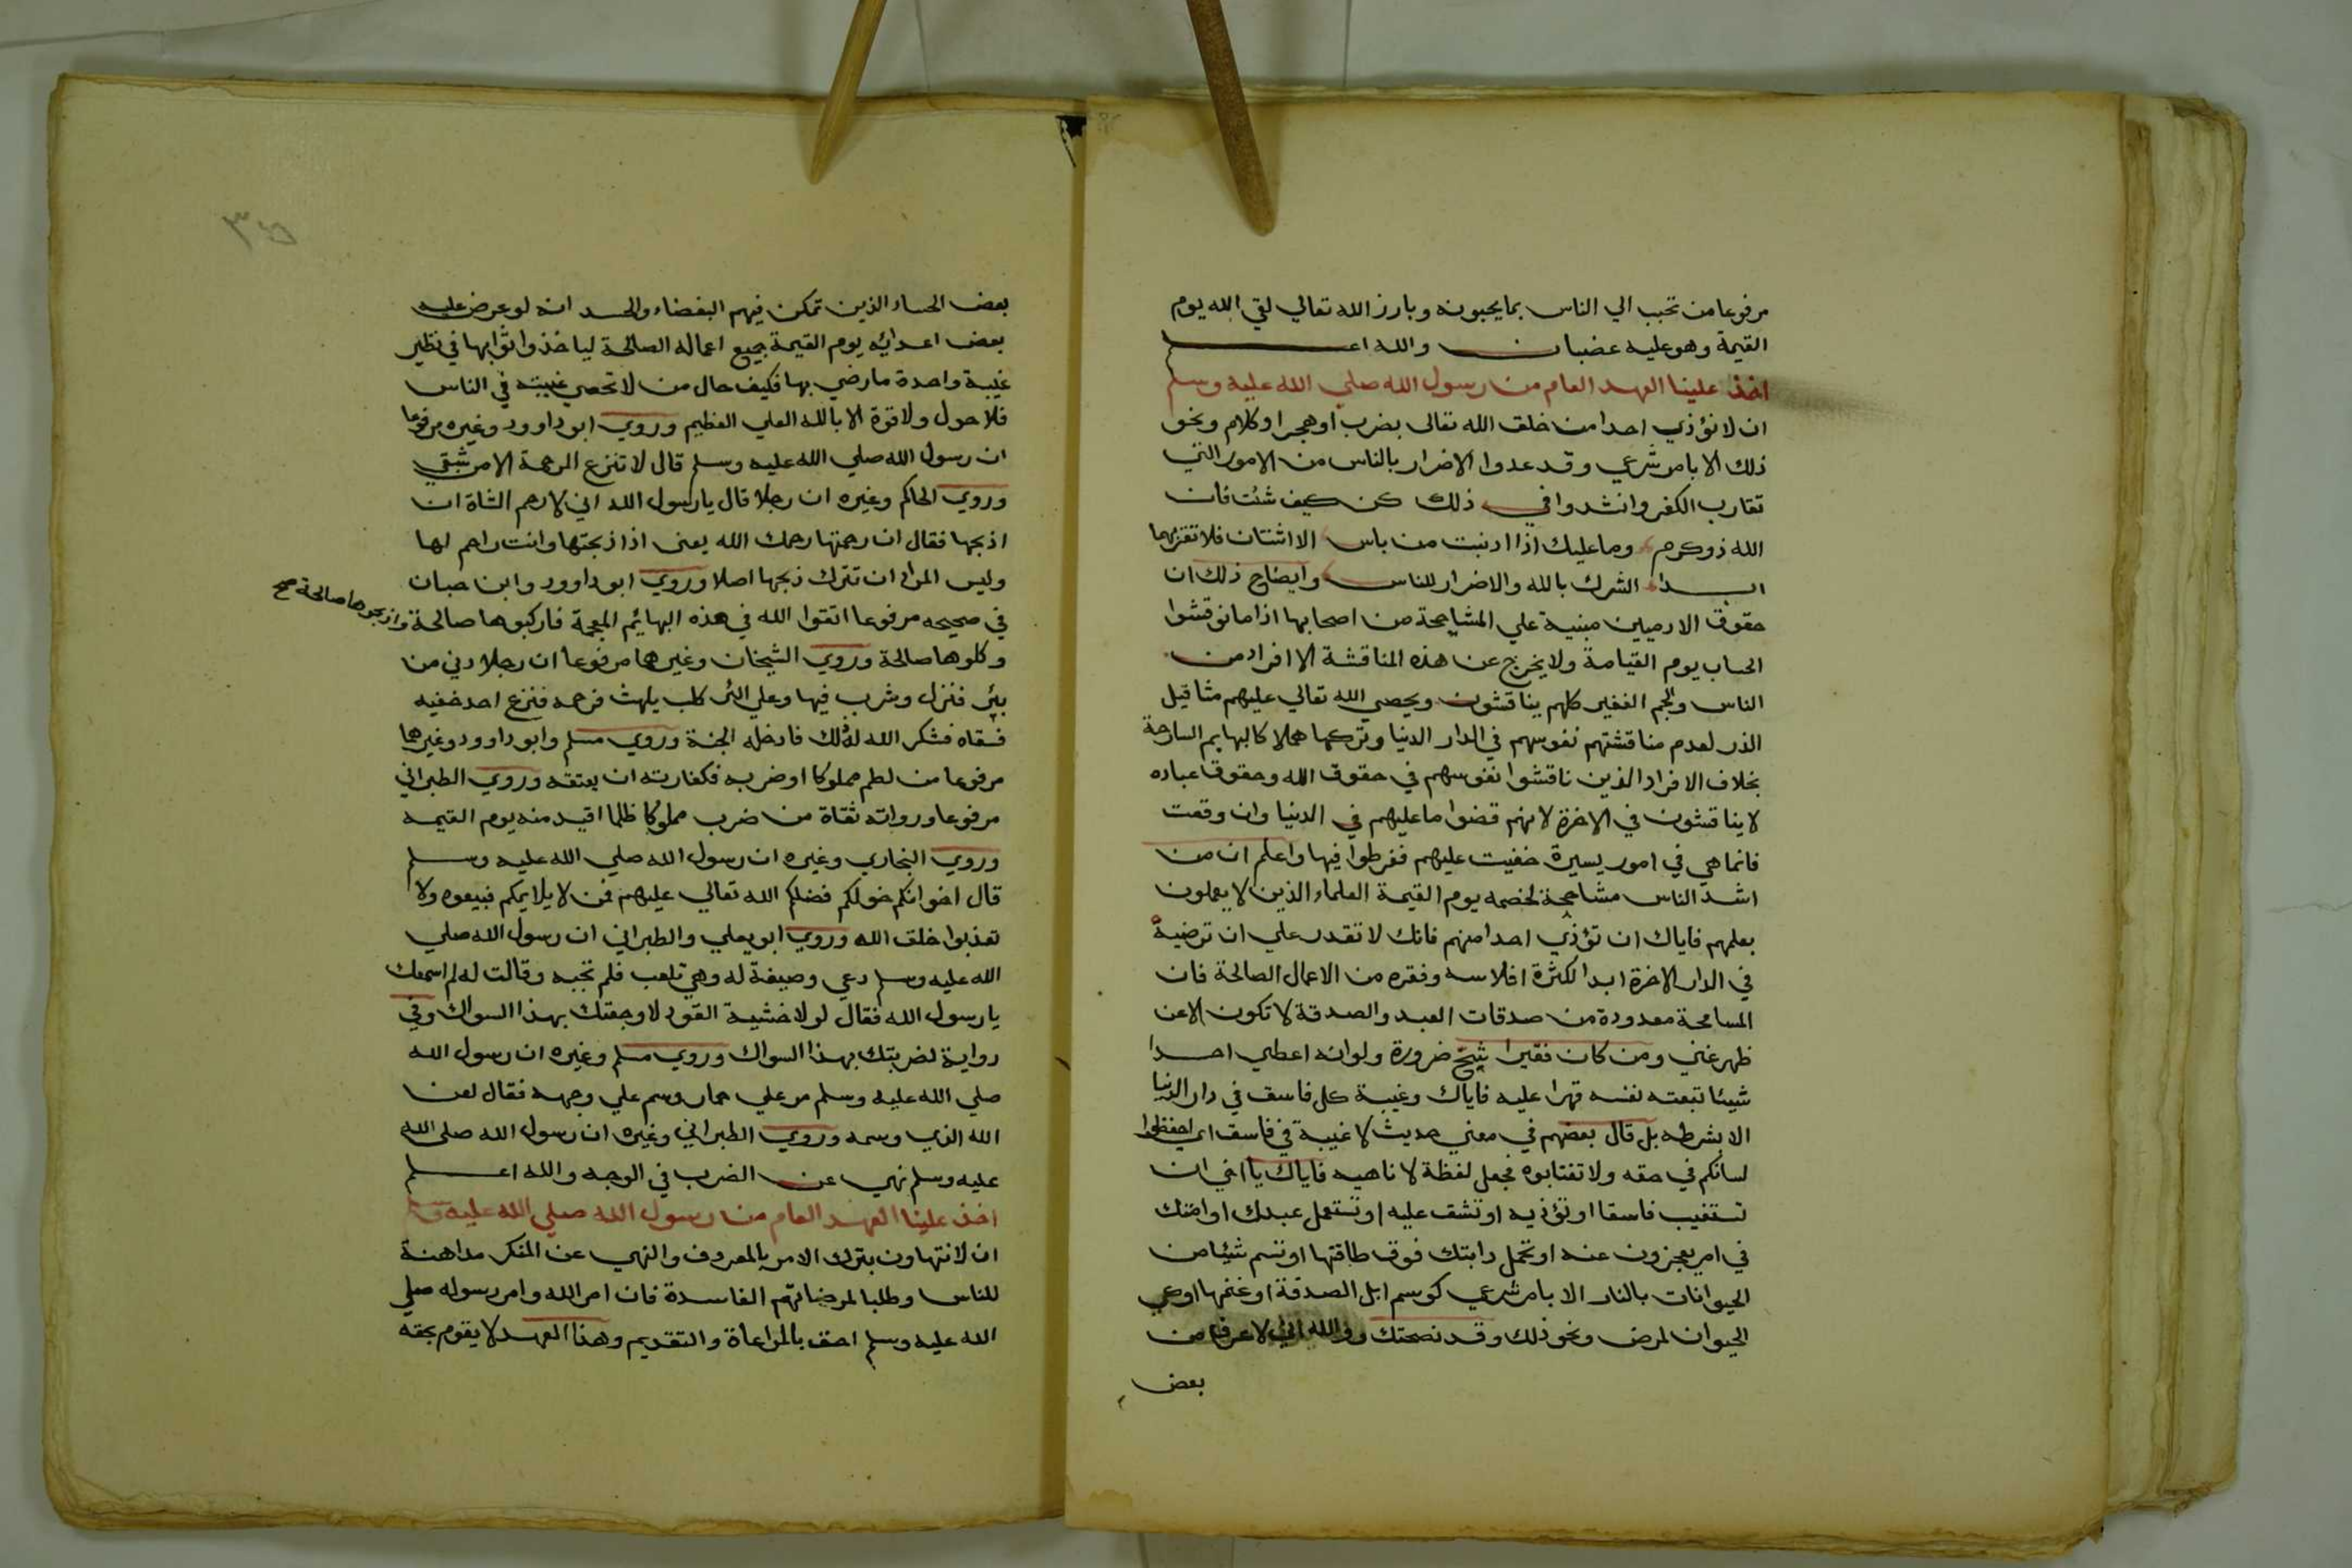 مرفوعا من تحبب الي الناس بما يحبونه وبارز الله تعالي لقي الله يوم
القيمة وهو عليه غضبان والله اعلم
اخذ علينا العهد العام من رسول الله صلي الله عليه وسلم
ان لا نؤذي احدا من خلق الله تعالى بضرب او هجر او كلام ونحو
ذلك الا بامر شرعي وقد عدوا الاضرار بالناس من الامور التي
تقارب الكفر وانشدوا في ذلك كن كيف شئت فان
الله ذو كرم وما عليك اذا ادنبت من باس الا اثنتان فلا تقربهما
ابدا الشرك بالله والاضرار للناس وايضاح ذلك ان
حقوق الادميين مبنية علي المشاححة من اصحابها اذا ما نوقشوا
الحساب يوم القيامة ولا يخرج عن هذه المناقشة الا افراد من
الناس والجم الغفير كلهم يناقشون ويحصي الله تعالي عليهم مثاقيل
الذر لعدم مناقشتهم نفوسهم في الدار الدنيا وتركها هملا كالبهايم السارحة
بخلاف الافراد الذين ناقشوا نفوسهم في حقوق الله وحقوق عباده
لا يناقشون في الاخرة لانهم قضوا ما عليهم في الدنيا وان وقعت
فانما هي في امور يسيرة خفيت عليهم ففرطوا فيها واعلم ان من
اشد الناس مشاححة لخصمه يوم القيمة العلماء الذين لا يعملون
بعلمهم فاياك ان تؤذي احدا منهم فانك لا تقدر علي ان ترضيه
في الدار الاخرة ابدا لكثرة افلاسه وفقره من الاعمال الصالحة فان
المسامحة معدودة من صدقات العبد والصدقة لا تكون الا عن
ظهر غني ومن كان فقيرا شح ضرورة ولو انه اعطي احدا
شيئا تبعته نفسه قهرا عليه فاياك وغيبة كل فاسق في دار الدنيا
الا بشرطه بل قال بعضهم في معني حديث لا غيبة في فاسق اي احفظوا
لسانكم في حقه ولا تغتابوه فجعل لفظة لا ناهيه فاياك يا اخي ان
تستغيب فاسقا او تؤذيه او تشق عليه او تستعمل عبدك او امتك
في امر يعجزون عنه او تحمل دابتك فوق طاقتها او تسم شيئا من
الحيوانات بالنار الا بامر شرعي كوسم ابل الصدقة او غنمها او كي
الحيوان لمرض ونحو ذلك وقد نصحتك ووالله اني لاعرف من
بعض
٣٥
بعض الحساد الذين تمكن فيهم البغضاء والحسد انه لو عرض عليه
بعض اعدائه يوم القيمة جميع اعماله الصالحة لياخذوا ثوابها في نظير
غيبة واحدة ما رضي بها فكيف حال من لا تحصي غيبته في الناس
فلا حول ولا قوة الا بالله العلي العظيم وروي ابو داوود وغيره مرفوعا
ان رسول الله صلي الله عليه وسلم قال لا تنزع الرحمة الا من شقي
وروي الحاكم وغيره ان رجلا قال يا رسول الله اني لارحم الشاة ان
اذبحها فقال ان رحمتها رحمك الله يعني اذا ذبحتها وانت راحم لها
وليس المراد ان تترك ذبحها اصلا وروي ابو داوود وابن حبان
في صحيحه مرفوعا اتقوا الله في هذه البهائم المعجمة فاركبوها صالحة واذبحوها صالحة صح
وكلوها صالحة وروي الشيخان وغيرهما مرفوعا ان رجلا دني من
بئر فنزل وشرب فيها وعلي البئر كلب يلهث فرحمه فنزع احد خفيه
فسقاه فشكر الله له ذلك فادخله الجنة وروي مسلم وابو داوود وغيرهما
مرفوعا من لطم مملوكا او ضربه فكفارته ان يعتقه وروي الطبراني
مرفوعا ورواته ثقاة من ضرب مملوكا ظلما اقيد منه يوم القيمه
وروي البخاري وغيره ان رسول الله صلي الله عليه وسلم
قال اخوانكم خولكم فضلكم الله تعالي عليهم فمن لا يلايمكم فبيعوه ولا
تعذبوا خلق الله وروي ابو يعلي والطبراني ان رسول الله صلي
الله عليه وسلم دعي وصيفة له وهي تلعب فلم تجبه وقالت له لم اسمعك
يا رسول الله فقال لولا خشية القود لاوجعتك بهذا السواك وفي
رواية لضربتك بهذا السواك وروي مسلم وغيره ان رسول الله
صلي الله عليه وسلم مر علي حمار وسم علي وجهه فقال لعن
الله الذي وسمه وروي الطبراني وغيره ان رسول الله صلى الله
عليه وسلم نهي عن الضرب في الوجه والله اعلم
اخذ علينا العهد العام من رسول الله صلي الله عليه وسلم
ان لا نتهاون بترك الامر بالمعروف والنهي عن المنكر مداهنة
للناس وطلبا لمرضاتهم الفاسدة فان امر الله وامر رسوله صلي
الله عليه وسلم احق بالمراعاة والتقديم وهذا العهد لا يقوم بحقه